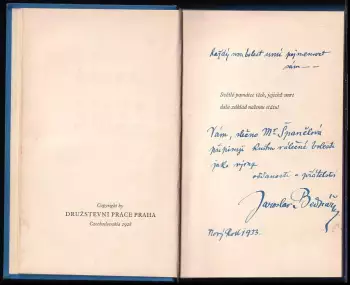 Copyright by
DRUŽSTEVNÍ PRÁCE PRAHA
Czechoslovakia 1928
každý svou bolest musí pojmenovat
sám - -
Světlé památce těch, jejichž smrt
dala základ našemu
Vám, slečno Mᶜ Španělová
připisuji knihu válečné bolesti
jako výraz
oddanosti a přátelství
Jaroslav Bednář
Nový Rok 1933.